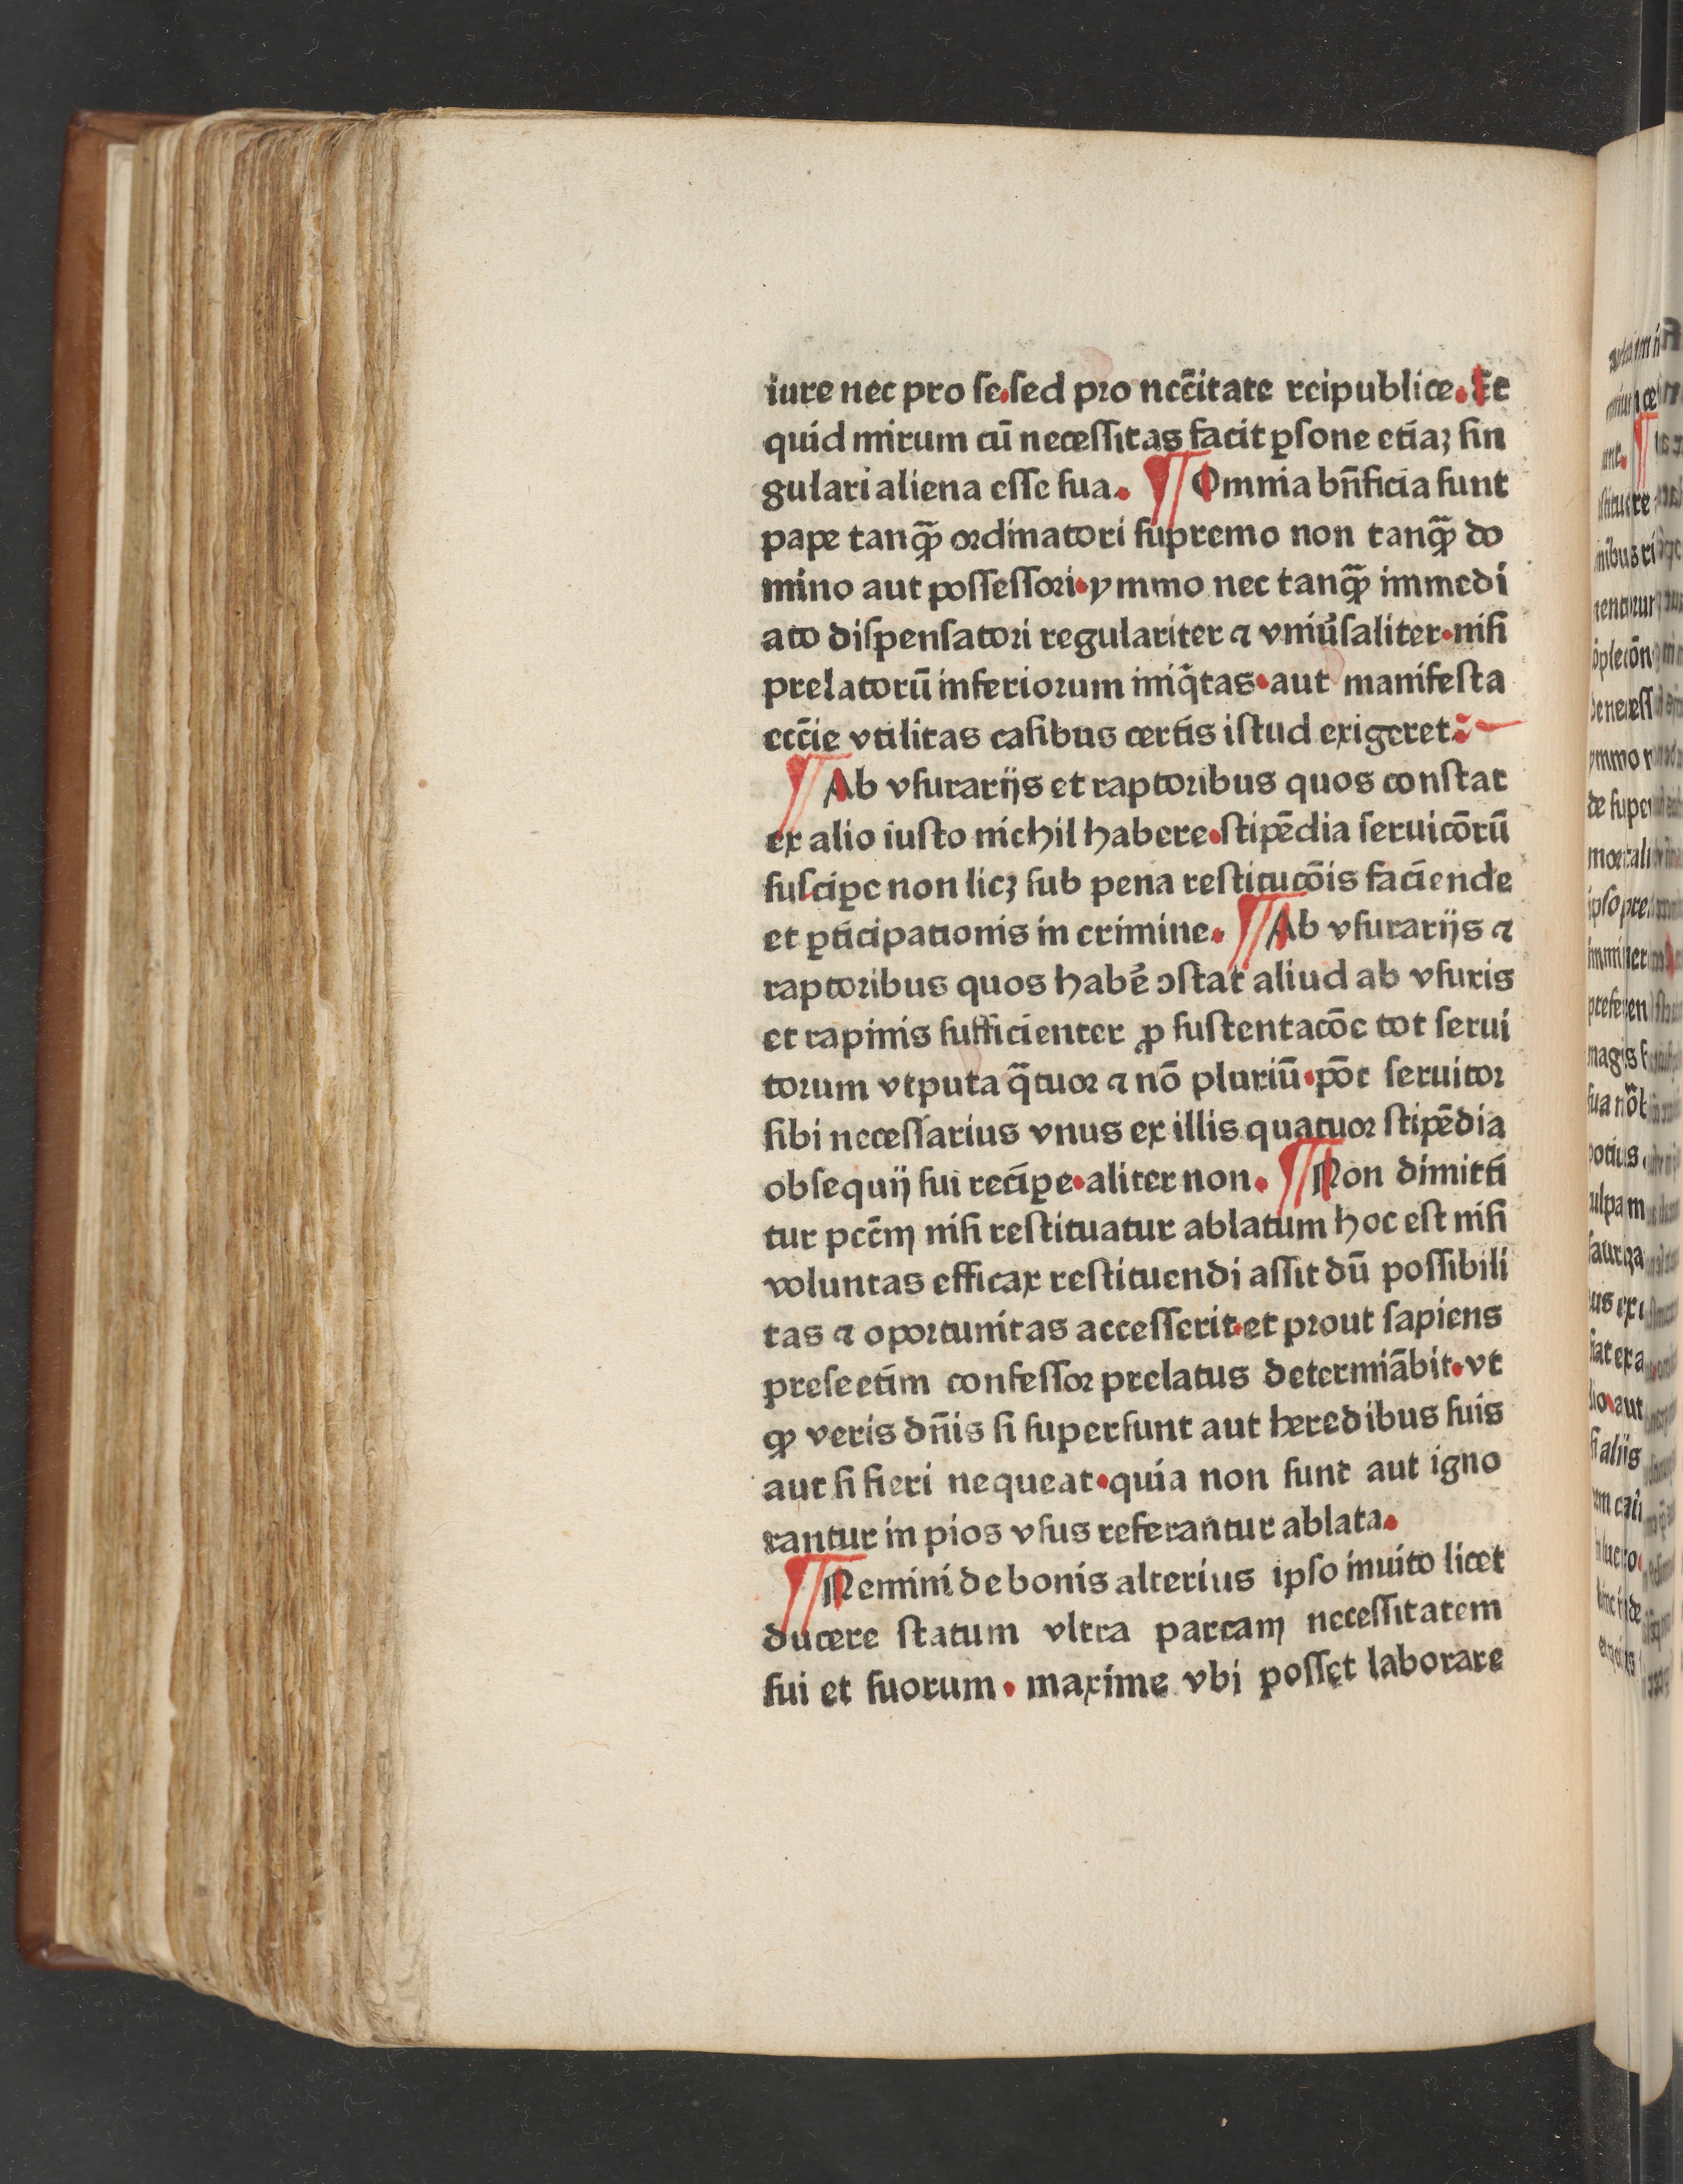 iure nec pro se.sed pro ncc̄itate reipublice. Et
quid mirum cū necessitas facit ꝑsone etiaꝫ sin
gulari aliena esse sua. ¶ Omnia bn̄ficia sunt
pape tanꝙ̄ ordinatori supremo non tanꝙ̄ do
mino aut possessori.ymmo nec tanꝙ̄ immedi
ato dispensatori regulariter ⁊ vniūsaliter.nisi
prelatorū inferiorum iniq̄tas.aut manifesta
ecc̄ie vtilitas casibus certis istud exigeret.
¶ Ab vsurarijs et raptoribus quos constat
ex alio iusto nichil habere.stipēdia seruicōrū
susciꝑe non licꝫ sub pena restitucōis faciende
et ꝑticipationis in crimine. ¶ Ab vsurarijs ⁊
raptoribus quos habē ↄstat aliud ab vsuris
et rapinis sufficienter ꝓ sustentacōe tot serui
torum vtputa q̄tuor ⁊ nō pluriū.pōt seruitor
sibi necessarius vnus ex illis quatuor stipēdia
obsequij sui reciꝑe.aliter non. ¶ Non dimitti
tur pcc̄m nisi restituatur ablatum hoc est nisi
voluntas efficax restituendi assit dū possibili
tas ⁊ oportunitas accesserit.et prout sapiens
presertim confessor prelatus determiābit.vt
ꝙ veris dn̄is si supersunt aut heredibus suis
aut si fieri nequeat.quia non sunt aut igno
rantur in pios vsus referantur ablata.
¶ Nemini de bonis alterius ipso inuito licet
ducere statum vltra parcam necessitatem
sui et suorum . maxime vbi posset laborare